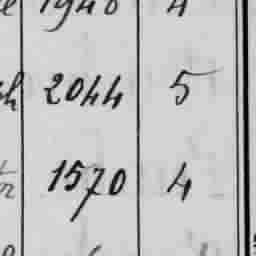 1948 4
2044 5
1570 4